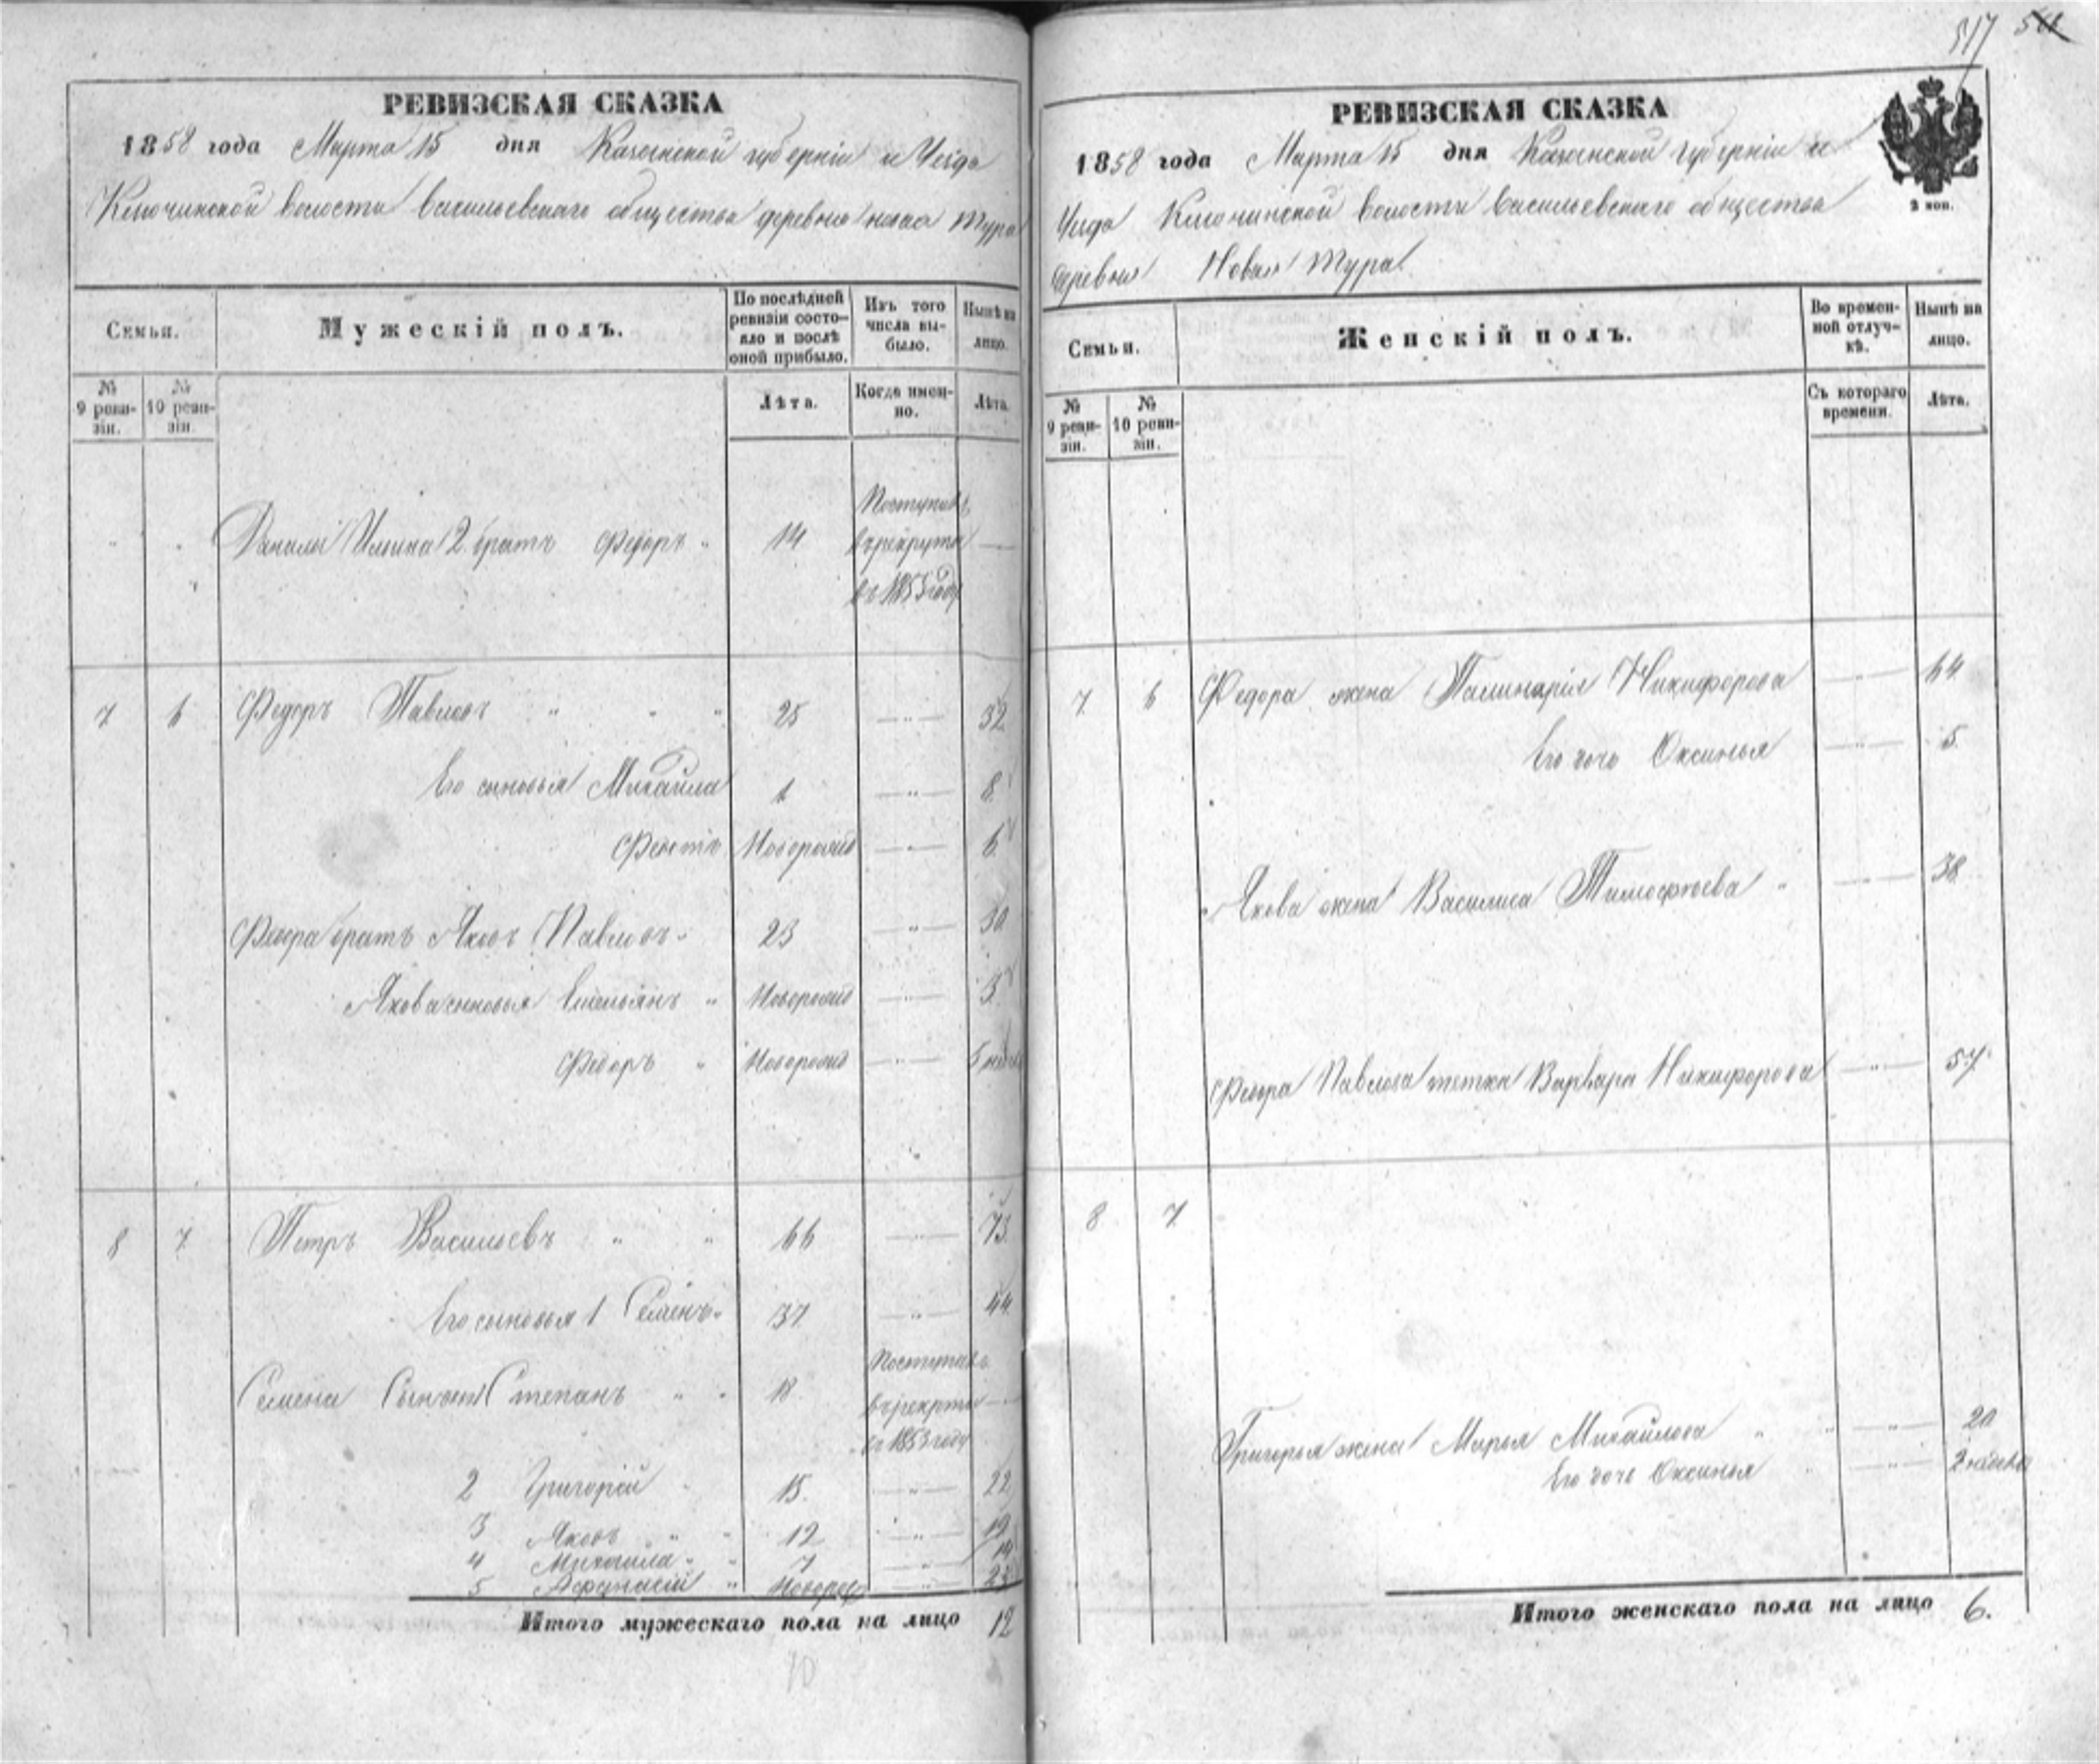 517 511
РЕВИЗСКАЯ СКАЗКА
1858 года Марта 15 дня Казанской губерніи и Уезда
Ключинской волости Васильевскаго общества деревни новая Тура
Семьи.
Мужескій полъ.
По послѣдней ревизіи состояло и послѣ оной прибыло.
Изъ того числа выбыло.
Нынѣ на лицо.
№ 9 ревизіи.
№ 10 ревизіи.
Лѣта.
Когда именно.
Лѣта.
Ильина 2 братъ Федоръ 14 Поступилъ в рекруты въ 1853 году
7 6 Федоръ Павловъ 25 32
Его сыновья Михайла 1 8
Новорожд 6
Федора братъ Яковъ Павловъ 23 30
Якова сыновья Емельянъ Новорожд 3
Федоръ Новорожд 5
8 7 Петръ Васильевъ 66 73
Его сыновья 1 Семенъ 37 44
Семена Степанъ 18 Поступилъ в рекруты въ 1853 году
2 Григорій 15 22
3 Яковъ 12 19
4 Михайла 7 14
5 Афанасій Новорож
Итого мужескаго пола на лицо 12
10
РЕВИЗСКАЯ СКАЗКА
1858 года Марта 15 дня Казанской губерніи и
Уезда Ключинской волости Васильевскаго общества
деревня Новая Тура
2 коп.
Семьи.
Женскій полъ.
Во временной отлучкѣ.
Нынѣ на лицо.
№ 9 ревизіи.
№ 10 ревизіи.
Съ котораго времени.
Лѣта.
7 6 Федора жена Никифорова
Его дочь Оксинья 5
Якова жена Василиса Тимофѣева 38
Федора Павлова тетка Варвара Никифорова 57
8 7
Григорья жена Марья Михайлова 20
Его дочь Оксинья 2
Итого женскаго пола на лицо 6.